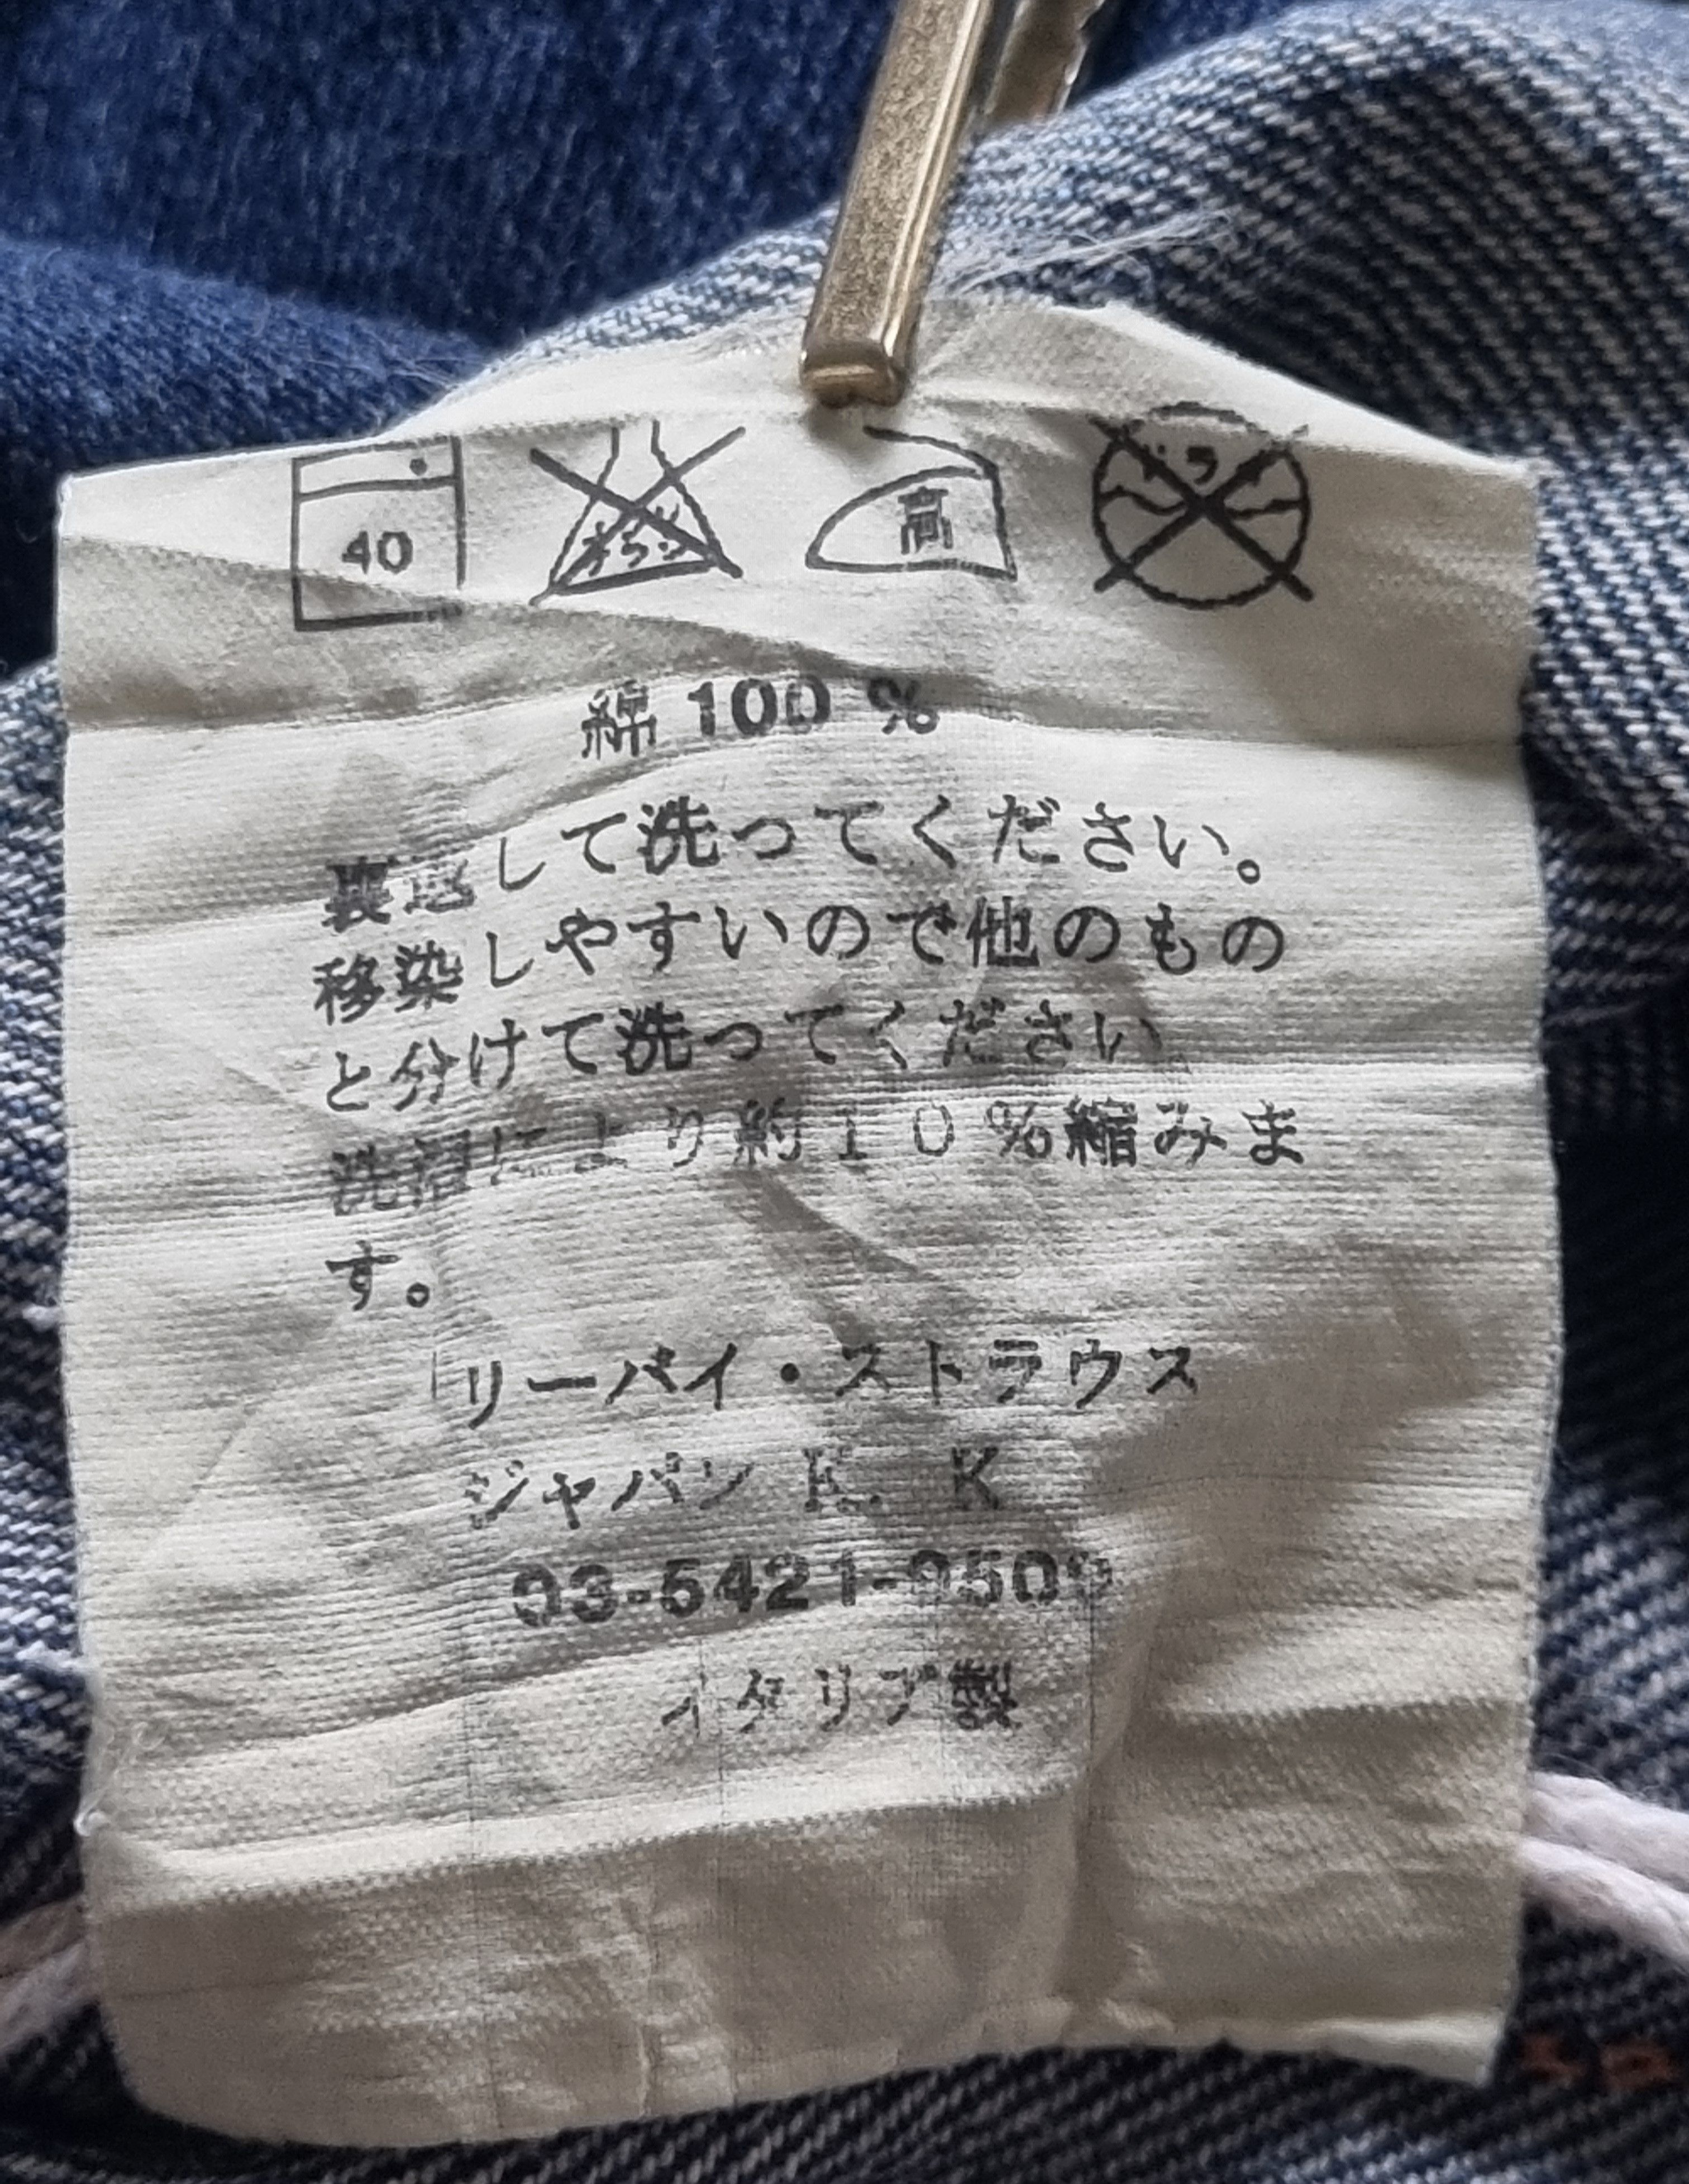 40
エンソサラシ
高
ドライ
綿 100 %
裏返して洗ってください。
移染しやすいので他のもの
と分けて洗ってください
洗濯により約10%縮みま
す。
リーバイ・ストラウス
ジャパン K. K
03-5421-9500
イタリア製